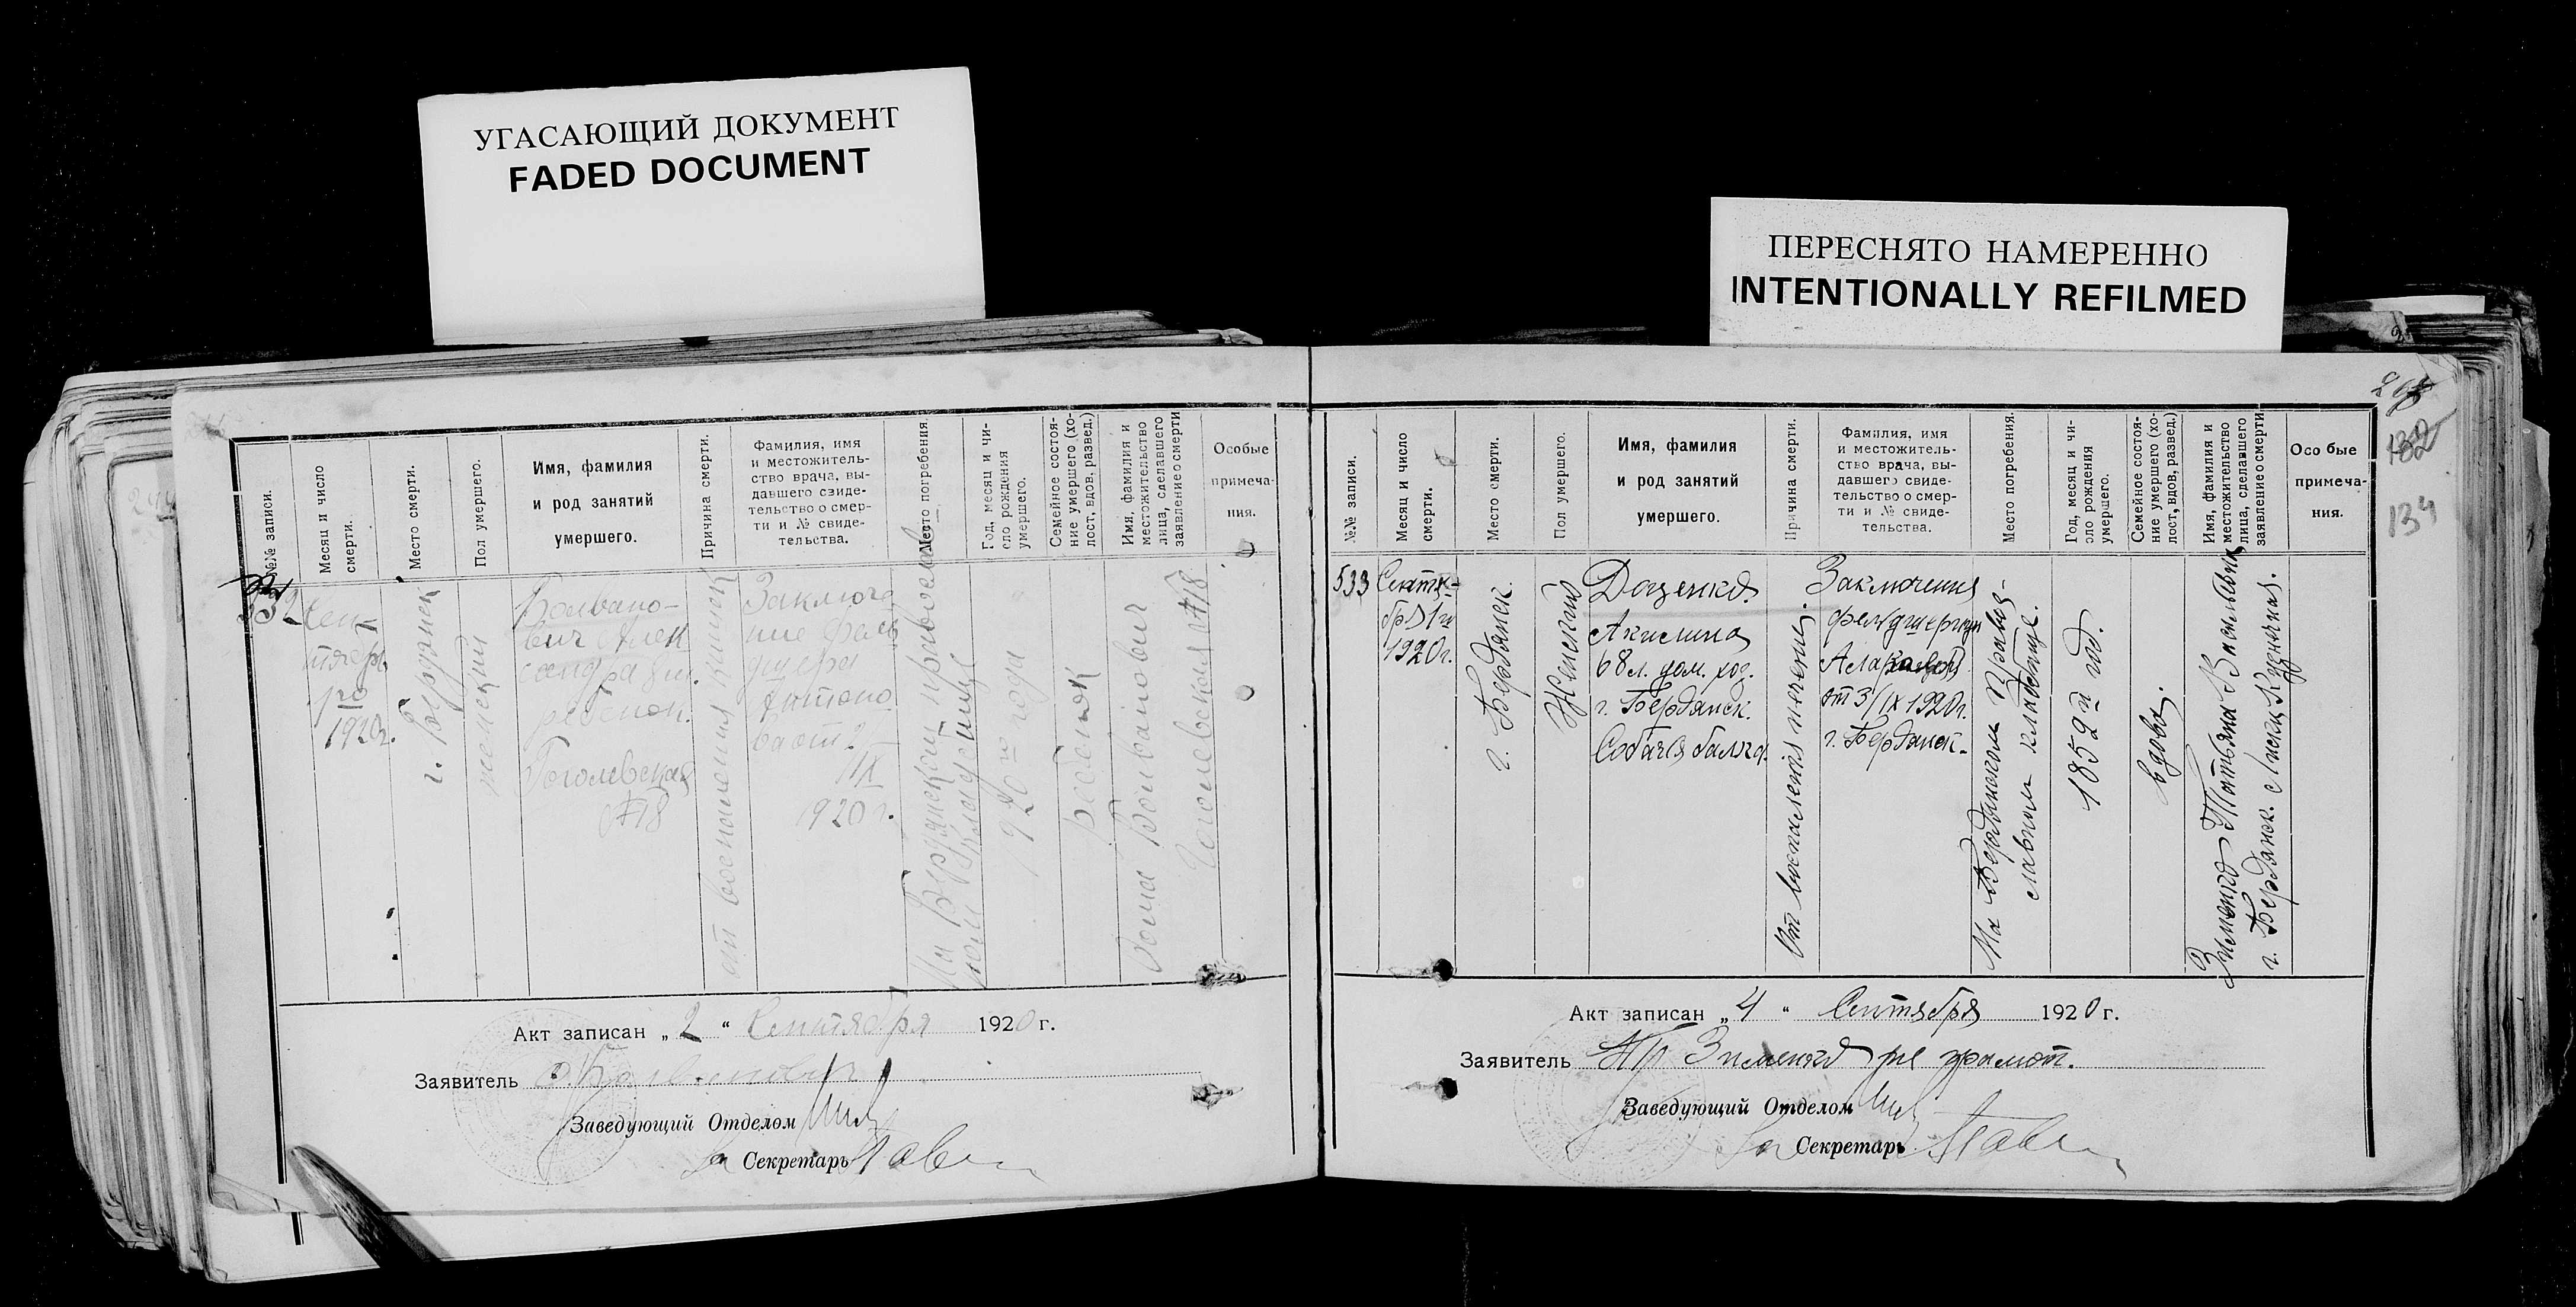 УГАСАЮЩИЙ ДОКУМЕНТ
FADED DOCUMENT
ПЕРЕСНЯТО НАМЕРЕННО
INTENTIONALLY REFILMED
№№ записи.
Месяц и число
смерти.
Место смерти.
Пол умершего.
Имя, фамилия
и род занятий
умершего.
Причина смерти.
Фамилия, имя
и местожитель-
ство врача, вы-
давшего свиде-
тельство о смер-
ти и № свиде-
тельства.
Место погребения.
Год, месяц и чи-
сло рождения
умершего.
Семейное состоя-
ние умершего (хо-
лост, вдов, развед.)
Имя, фамилия и
местожительство
лица, сделавшего
заявление о смерти
Особые
примеча-
ния.
532
Сен-
тябрь
1го
1920г.
г. Бердянск
женский
Болвано-
вич Алек
сандра 8 м.
ребенок.
Гоголевская
№18
от воспаления кишек
Заключе
ние фель
дшера
Антоно
ва от 2
IX
1920 г.
На Бердянском православ
ном кладбище
1920го года
ребенок
Фома Болванович
Гоголевская №18
Акт записан „ 2 “ Сентября 1920 г.
Заявитель Ф. Болванович
Заведующий Отделом
Секретарь
134
№№ записи.
Месяц и число
смерти.
Место смерти.
Пол умершего.
Имя, фамилия
и род занятий
умершего.
Причина смерти.
Фамилия, имя
и местожитель-
ство врача, вы-
давшего свиде-
тельство о смер-
ти и № свиде-
тельства.
Место погребения.
Год, месяц и чи-
сло рождения
умершего.
Семейное состоя-
ние умершего (хо-
лост, вдов, развед.)
Имя, фамилия и
местожительство
лица, сделавшего
заявление о смерти.
Особые
примеча-
ния.
533
Сентя-
бря 1го
1920г.
г. Бердянск.
Женский
Доценко
Акилина
68 л. дом. хоз.
г. Бердянск.
Собачья балка.
От воспаления печени.
Заключения
фельдшерицы
от 3/IX 1920г.
г. Бердянск.
На Бердянском Право-
славном кладбище.
1852й год.
вдова.
Зименко Татьяна Васильевна
г. Бердянск.
Акт записан „ 4 “ Сентября 1920 г.
Заявитель Гр Зименко не грамот.
Заведующий Отделом
Секретарь